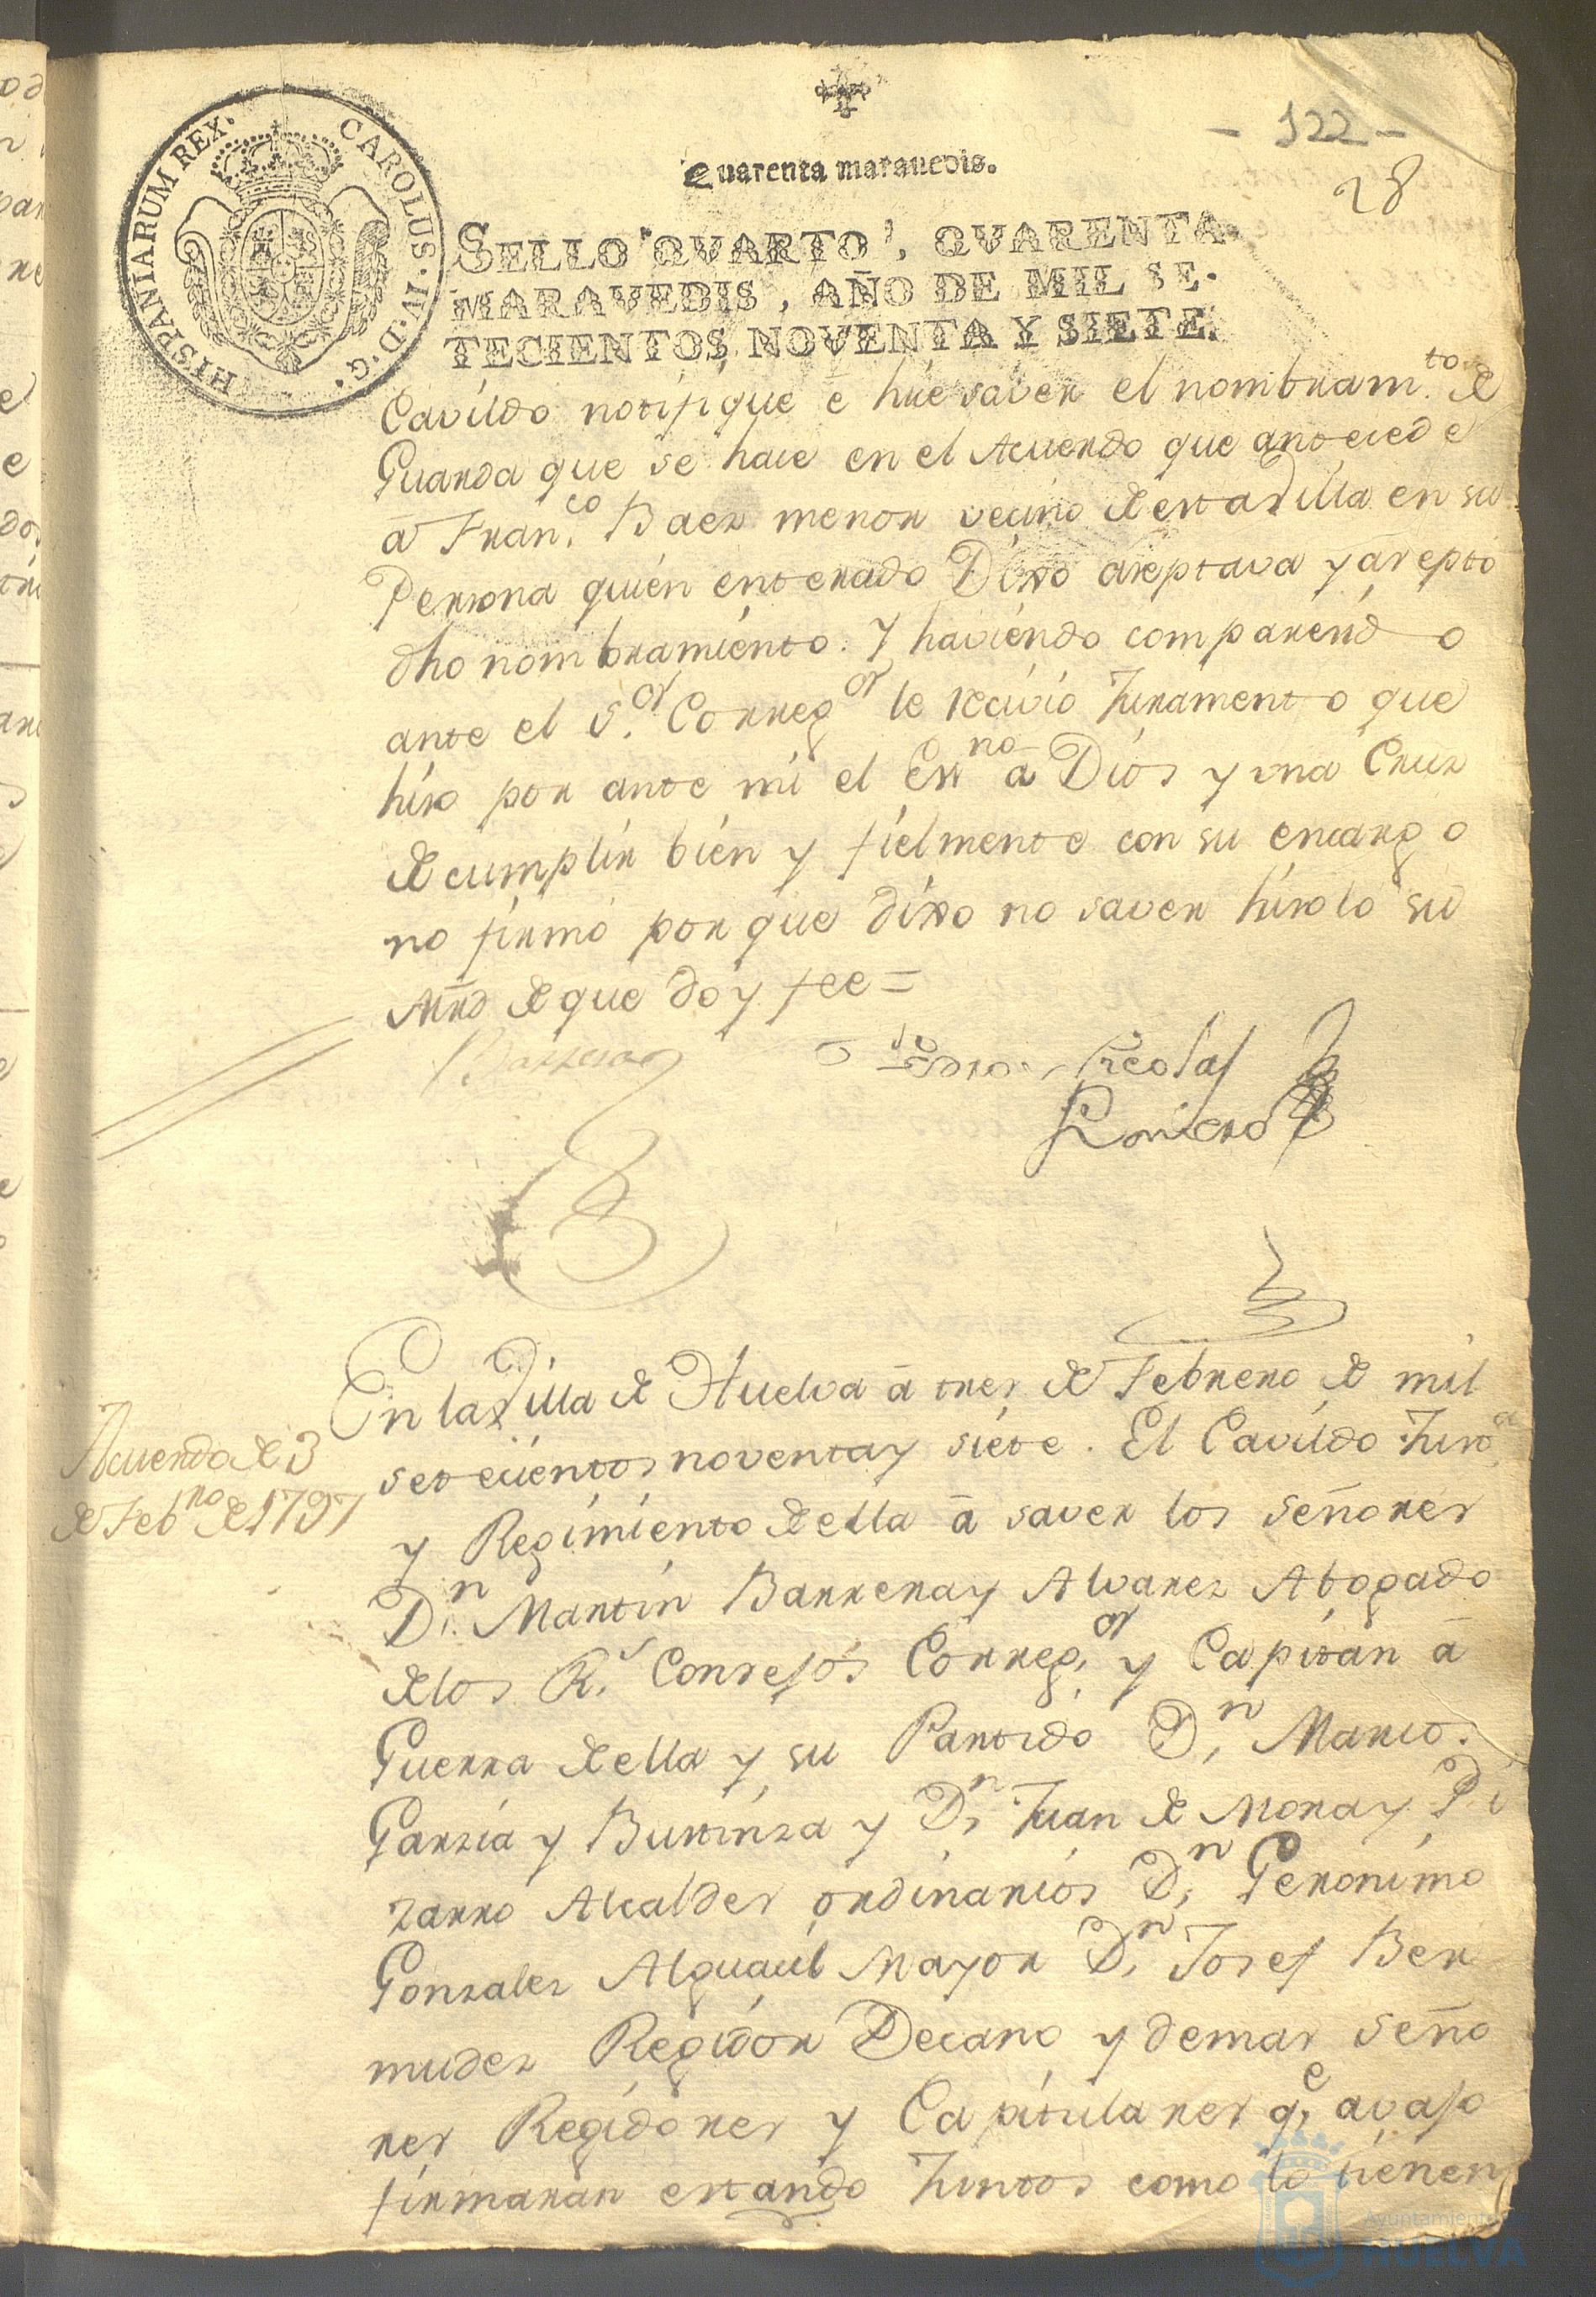 - 122 -
28
Quarenta maravedis.
CAROLUS·IV·D·G· HISPANIARUM REX·
SELLO QVARTO, QVARENTA
MARAVEDIS, AÑO DE MIL SE-
TECIENTOS NOVENTA Y SIETE.
Cavildo notifiqué é hise saver el nombram.to de
Guarda que se hace en el Acuerdo que antecede
á Fran.co Baez menor vecino de esta Villa en su
Persona quién enterado Dixo aseptava y aseptó
dho nombramiento. Y haviendo comparend o
ante el S.or Correg.or le recivió Juramento que
hiso por ante mi el Essno á Dios y una Cruz
de cumplir bien y fielmente con su encargo
no firmó porque dixo no saver hisolo su
Mrd de que doy fee =
Barrera
Pedro Nicolas
Romero
Acuerdo de 3
de Febro de 1797
En la Villa de Huelva á tres de Febrero de mil
setecientos noventa y siete. El Cavildo Justa
y Regimiento de ella á saver los señores
D.n Martin Barrera y Alvares Abogado
de los R.s Consejos Correg.or y Capitan á
Guerra de ella y su Partido D.n Marco.
Garzia y Bustinza y D.n Juan de Mora y Pi
zarro Alcaldes ordinarios D.n Geronimo
Gonzales Alguacil Mayor D.n Josef Ber
mudez Regidor Decano y demas seño
res Regidores y Capitulares q.e avajo
firmaran estando Juntos como lo tienen
Ayuntamiento de
HUELVA